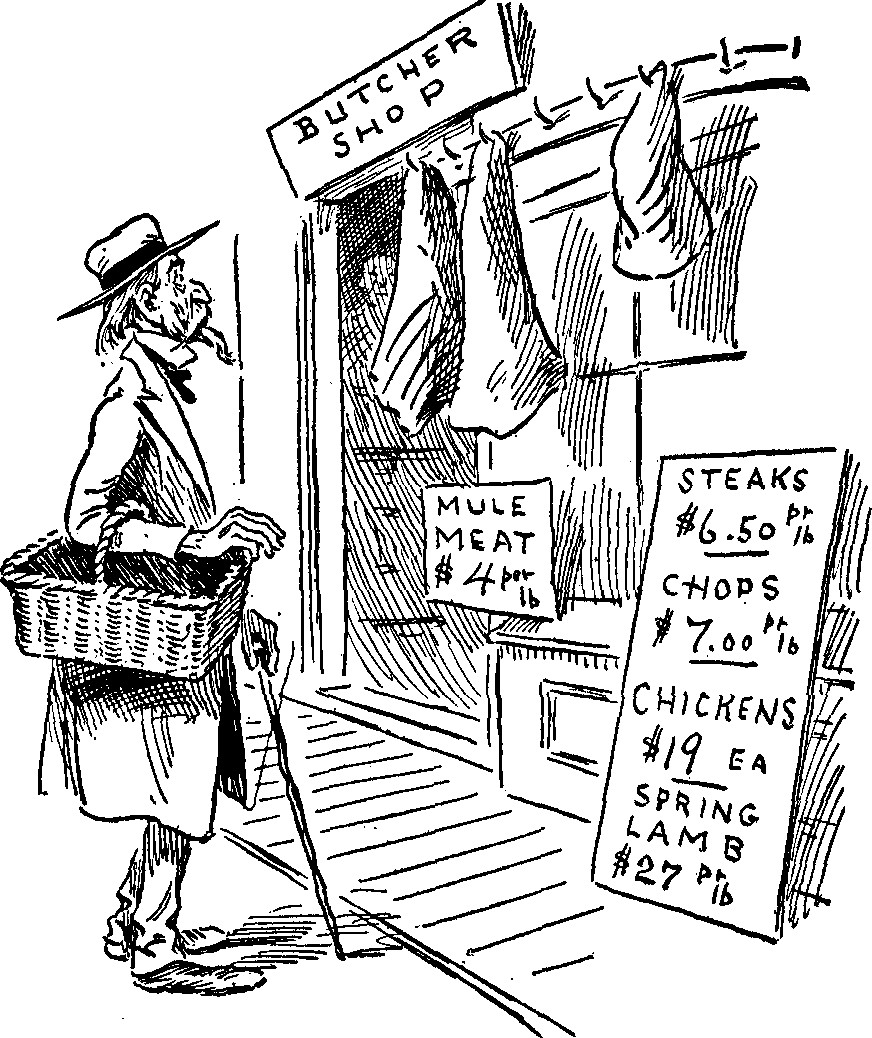 BUTCHER
SHOP
MULE
MEAT
$4 per
lb
STEAKS
$6.50 pr
lb
CHOPS
$7.00 pr
lb
CHICKENS
$19 EA
SPRING
LAMB
$27 pr
lb